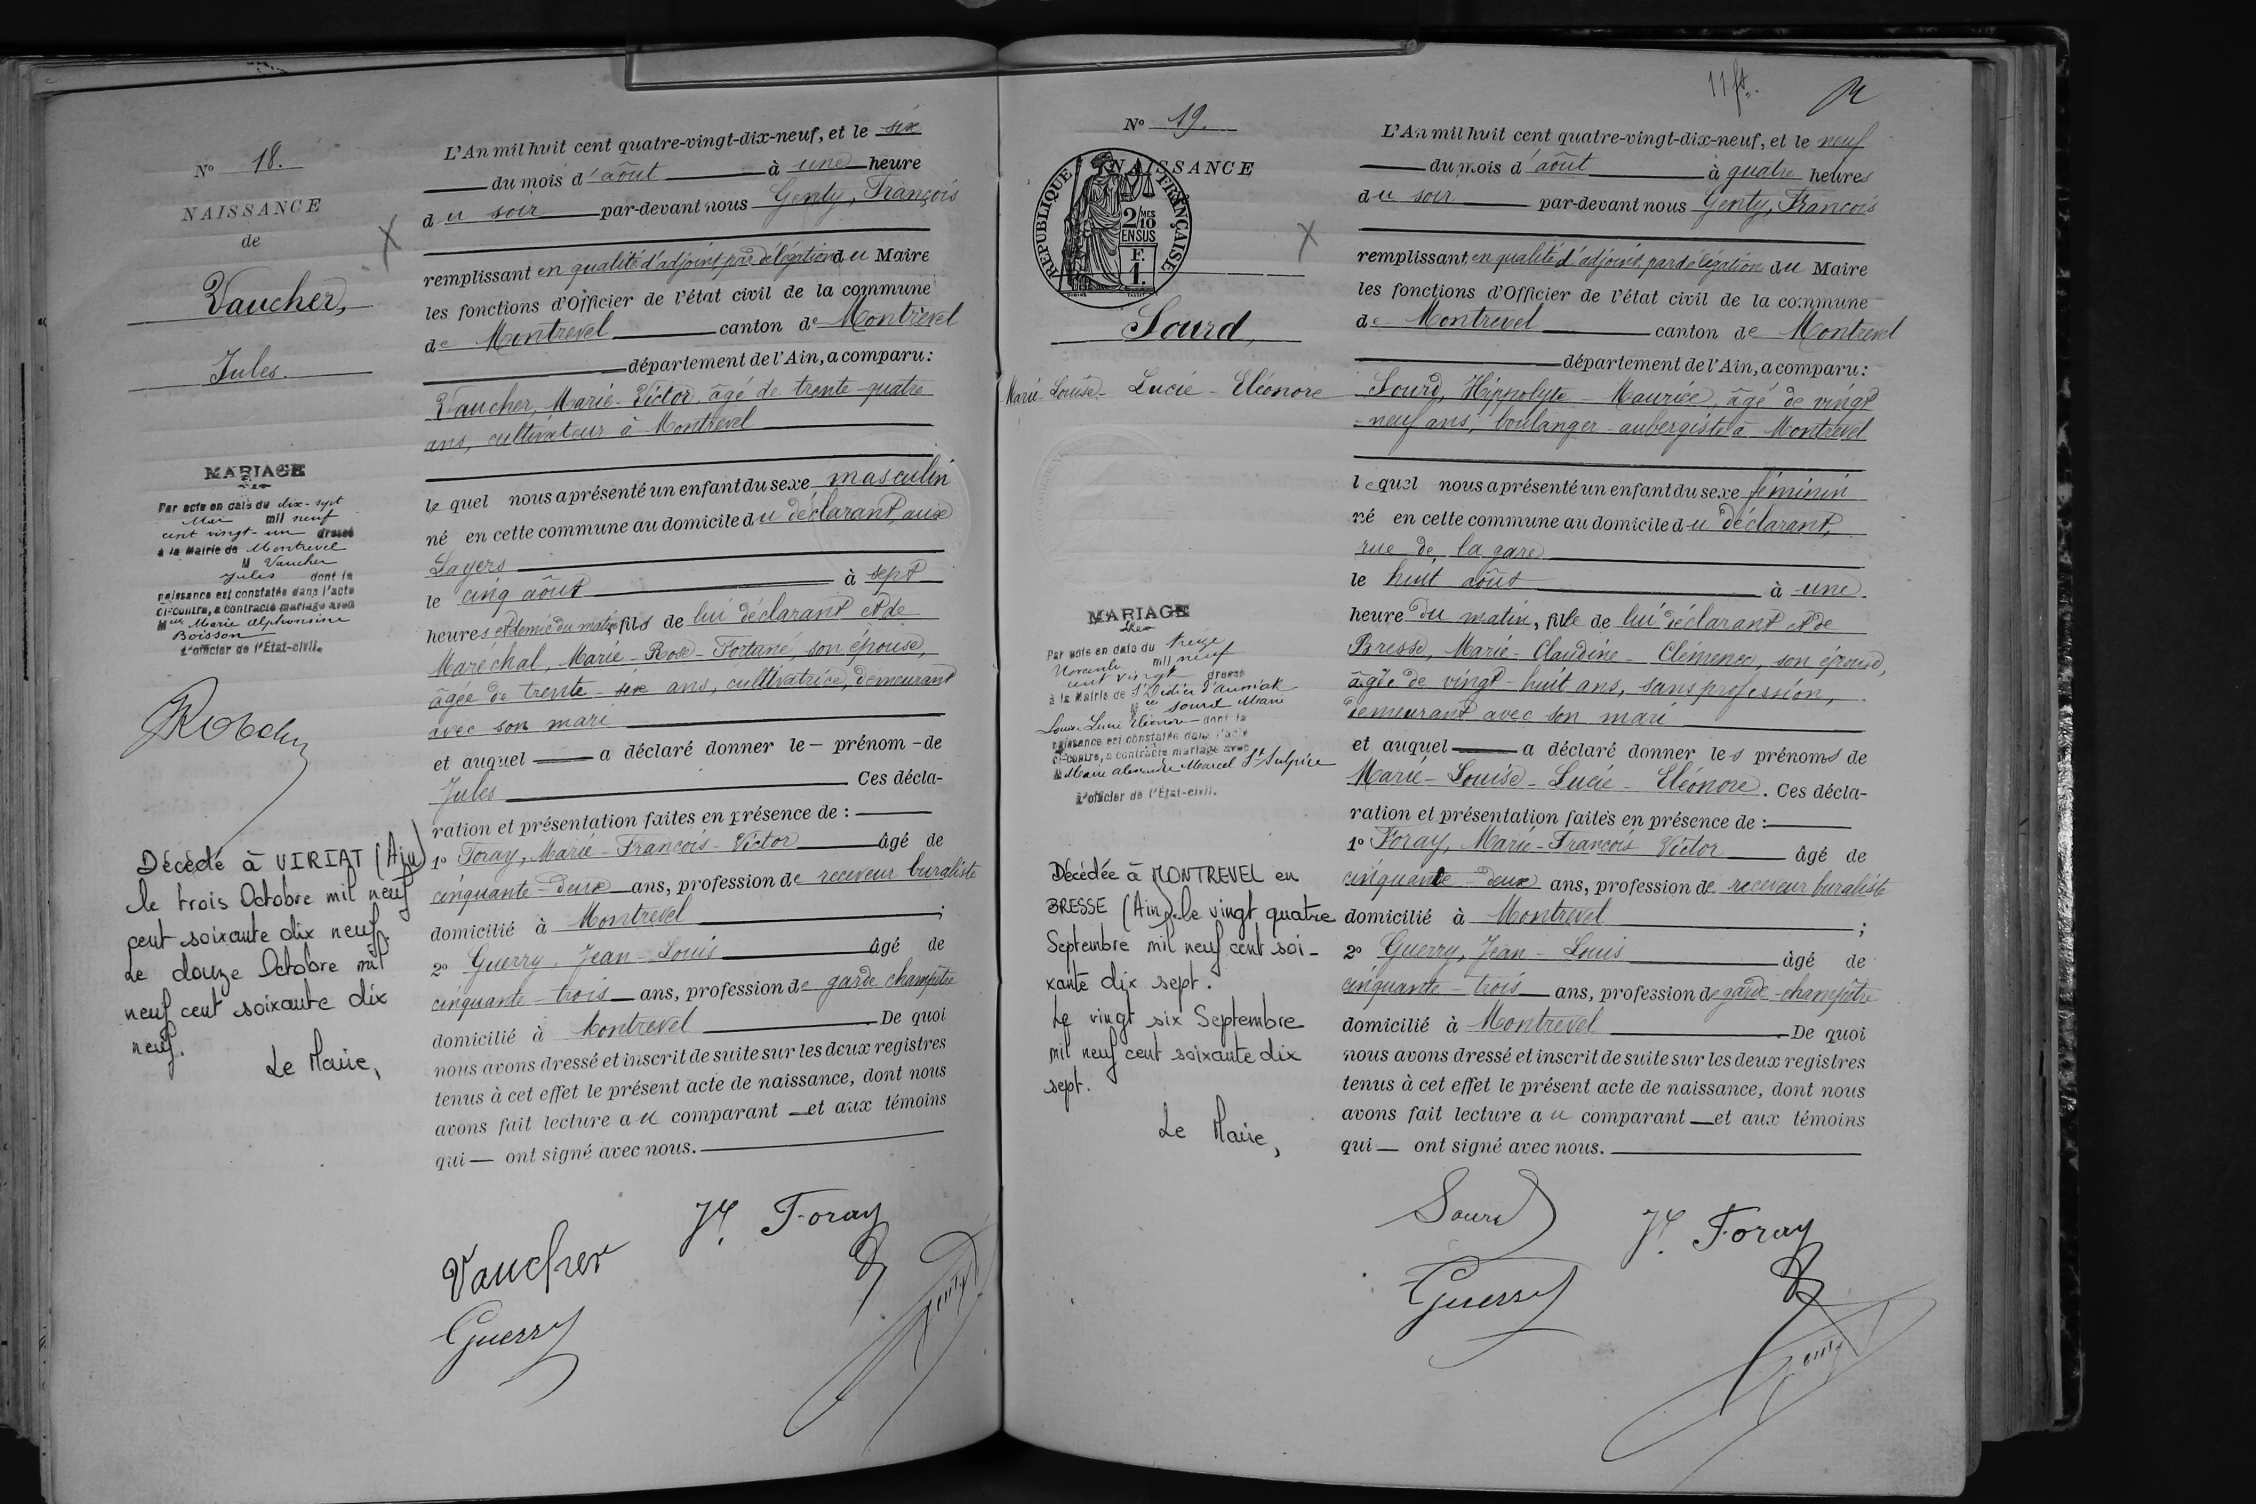 N° 18.
NAISSANCE
de
Vaucher,
Jules.
MARIAGE
Par acte en date du dix-sept
Mai mil neuf
cent vingt-un dressé
à la Mairie de Montrevel
M Vaucher
Jules dont la
naissance est constatée dans l'acte
ci-contre, a contracté mariage avec
Melle Marie Alphonsine
Boisson
L'officier de l'Etat-civil.
Décédé à VIRIAT (Ain)
le trois Octobre mil neuf
cent soixante dix neuf.
Le douze Octobre mil
neuf cent soixante dix
neuf.
Le Maire,
L'An mil huit cent quatre-vingt-dix-neuf, et le six
du mois d'août à une heure
du soir par-devant nous Genty, François
remplissant en qualité d'adjoint par délégation du Maire
les fonctions d'Officier de l'état civil de la commune
de Montrevel canton de Montrevel
département de l'Ain, a comparu :
Vaucher, Marie-Victor, âgé de trente-quatre
ans, cultivateur à Montrevel
lequel nous a présenté un enfant du sexe masculin
né en cette commune au domicile du déclarant, aux
Sayers
le cinq août à sept
heures et demie du matin, fils de lui déclarant et de
Maréchal, Marie-Rose-Fortuné, son épouse,
âgée de trente-six ans, cultivatrice, demeurant
avec son mari
et auquel a déclaré donner le prénom de
Jules Ces décla-
ration et présentation faites en présence de :
1° Foray, Marie-François-Victor âgé de
cinquante-deux ans, profession de receveur buraliste
domicilié à Montrevel ;
2° Guerry, Jean-Louis âgé de
cinquante-trois ans, profession de garde champêtre
domicilié à Montrevel De quoi
nous avons dressé et inscrit de suite sur les deux registres
tenus à cet effet le présent acte de naissance, dont nous
avons fait lecture au comparant et aux témoins
qui ont signé avec nous.
Vaucher
Foray
Guerry
Genty
N° 19.
NAISSANCE
REPUBLIQUE FRANÇAISE
2/10 MES
EN SUS
F.
1.
Sourd,
Marie-Louise-Lucie-Eléonore
MARIAGE
Par acte en date du treize
Novembre mil neuf
cent vingt dressé
à la Mairie de St Didier d'Aussiat
Melle Sourd Marie
Louise Lucie Eléonore dont la
naissance est constatée dans l'acte
ci-contre, a contracté mariage avec
M Marie Alexandre Marcel St Sulpice
L'officier de l'Etat-civil.
Décédée à MONTREVEL en
BRESSE (Ain). le vingt quatre
Septembre mil neuf cent soi-
xante dix sept.
Le vingt six Septembre
mil neuf cent soixante dix
sept.
Le Maire,
L'An mil huit cent quatre-vingt-dix-neuf, et le neuf
du mois d'août à quatre heures
du soir par-devant nous Genty, François
remplissant en qualité d'adjoint par délégation du Maire
les fonctions d'Officier de l'état civil de la commune
de Montrevel canton de Montrevel
département de l'Ain, a comparu :
Sourd, Hippolyte-Maurice, âgé de vingt
-neuf ans, boulanger-aubergiste à Montrevel
lequel nous a présenté un enfant du sexe féminin
né en cette commune au domicile du déclarant,
rue de la gare
le huit août à une
heure du matin, fille de lui déclarant et de
Bresse, Marie-Claudine-Clemence, son épouse,
âgée de vingt-huit ans, sans profession,
demeurant avec son mari
et auquel a déclaré donner les prénoms de
Marie-Louise-Lucie-Eléonore. Ces décla-
ration et présentation faites en présence de :
1° Foray, Marie-François Victor âgé de
cinquante-deux ans, profession de receveur buraliste
domicilié à Montrevel ;
2° Guerry, Jean-Louis âgé de
cinquante-trois ans, profession de garde-champêtre
domicilié à Montrevel De quoi
nous avons dressé et inscrit de suite sur les deux registres
tenus à cet effet le présent acte de naissance, dont nous
avons fait lecture au comparant et aux témoins
qui ont signé avec nous.
Sourd
Foray
Guerry
Genty